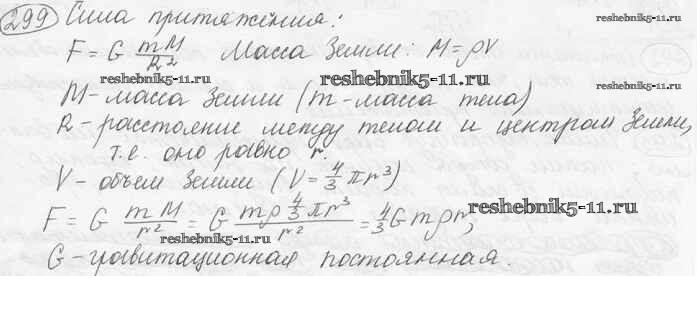 299 Сила притяжения:
reshebnik5-11.ru
F = G mM/R² Масса Земли: M = ρV
reshebnik5-11.ru
reshebnik5-11.ru
reshebnik5-11.ru
M - масса Земли (m - масса тела)
R - расстояние между телом и центром Земли,
т.е. оно равно r.
V - объем Земли (V = 4/3 πr³)
F = G mM/r² = G mρ 4/3 πr³/r² = 4/3 G mρr,
reshebnik5-11.ru
reshebnik5-11.ru
G - гравитационная постоянная.